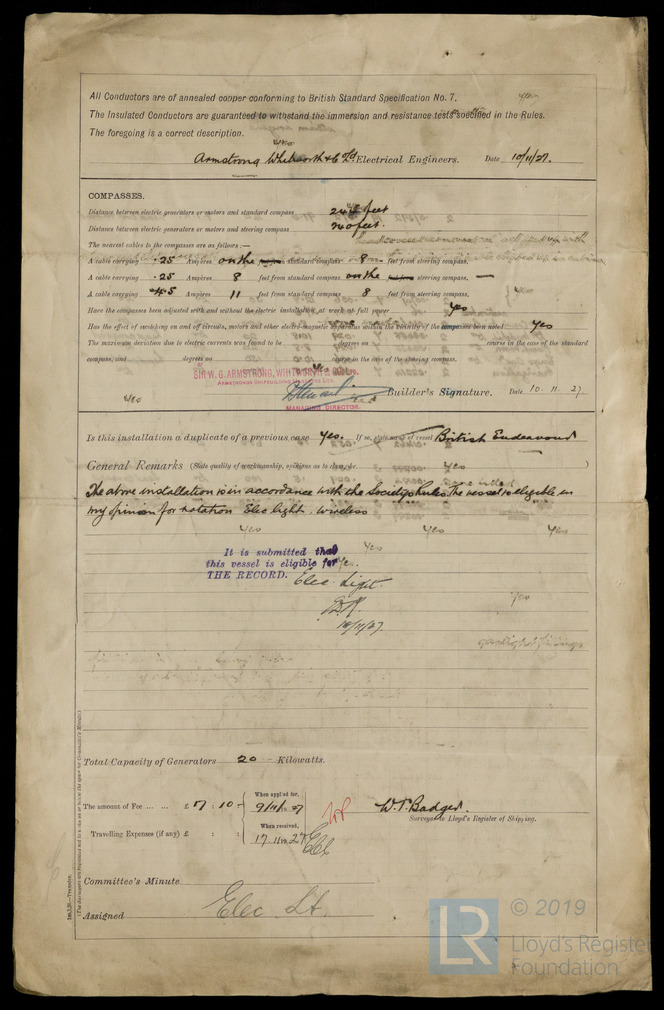 All Conductors are of annealed copper conforming to British Standard Specification No. 7.
The Insulated Conductors are guaranteed to withstand the immersion and resistance tests specified in the Rules.
The foregoing is a correct description.
Armstrong Whitworth & Co Ld Electrical Engineers. Date 10/11/27.
COMPASSES.
Distance between electric generators or motors and standard compass feet
Distance between electric generators or motors and steering compass feet.
The nearest cables to the compasses are as follows:—
A cable carrying .25 Ampères on the standard compass 8 feet from steering compass.
A cable carrying .25 Ampères 8 feet from standard compass on the steering compass.
A cable carrying 4.5 Ampères 11 feet from standard compass 8 feet from steering compass.
Have the compasses been adjusted with and without the electric installation at work at full power yes
Has the effect of switching on and off circuits, motors and other electro-magnetic apparatus within the vicinity of the compasses been noted yes
The maximum deviation due to electric currents was found to be degrees on course in the case of the standard
compass, and degrees on course in the case of the steering compass.
SIR W. G. ARMSTRONG, WHITWORTH & CO.
ARMSTRONGS SHIPBUILDING
MANAGING DIRECTOR.
Builder's Signature. Date 10.11.27
Is this installation a duplicate of a previous case Yes. If so, state name of vessel British Endeavour
General Remarks (State quality of workmanship, opinions as to class, &c. )
The above installation is in accordance with the Society's Rules. The vessel is eligible in
my opinion for notation Elec light, wireless
It is submitted that
this vessel is eligible for
THE RECORD. Elec. Light.
18/11/27
Total Capacity of Generators 20 Kilowatts.
The amount of Fee ... ... £ 7 : 10 : When applied for, 9/11/27
Travelling Expenses (if any) £ : : When received, 17.11.27
W.T. Badger.
Surveyor to Lloyd's Register of Shipping.
Committee's Minute
Assigned Elec Lt.
LR © 2019
Lloyd's Register
Foundation